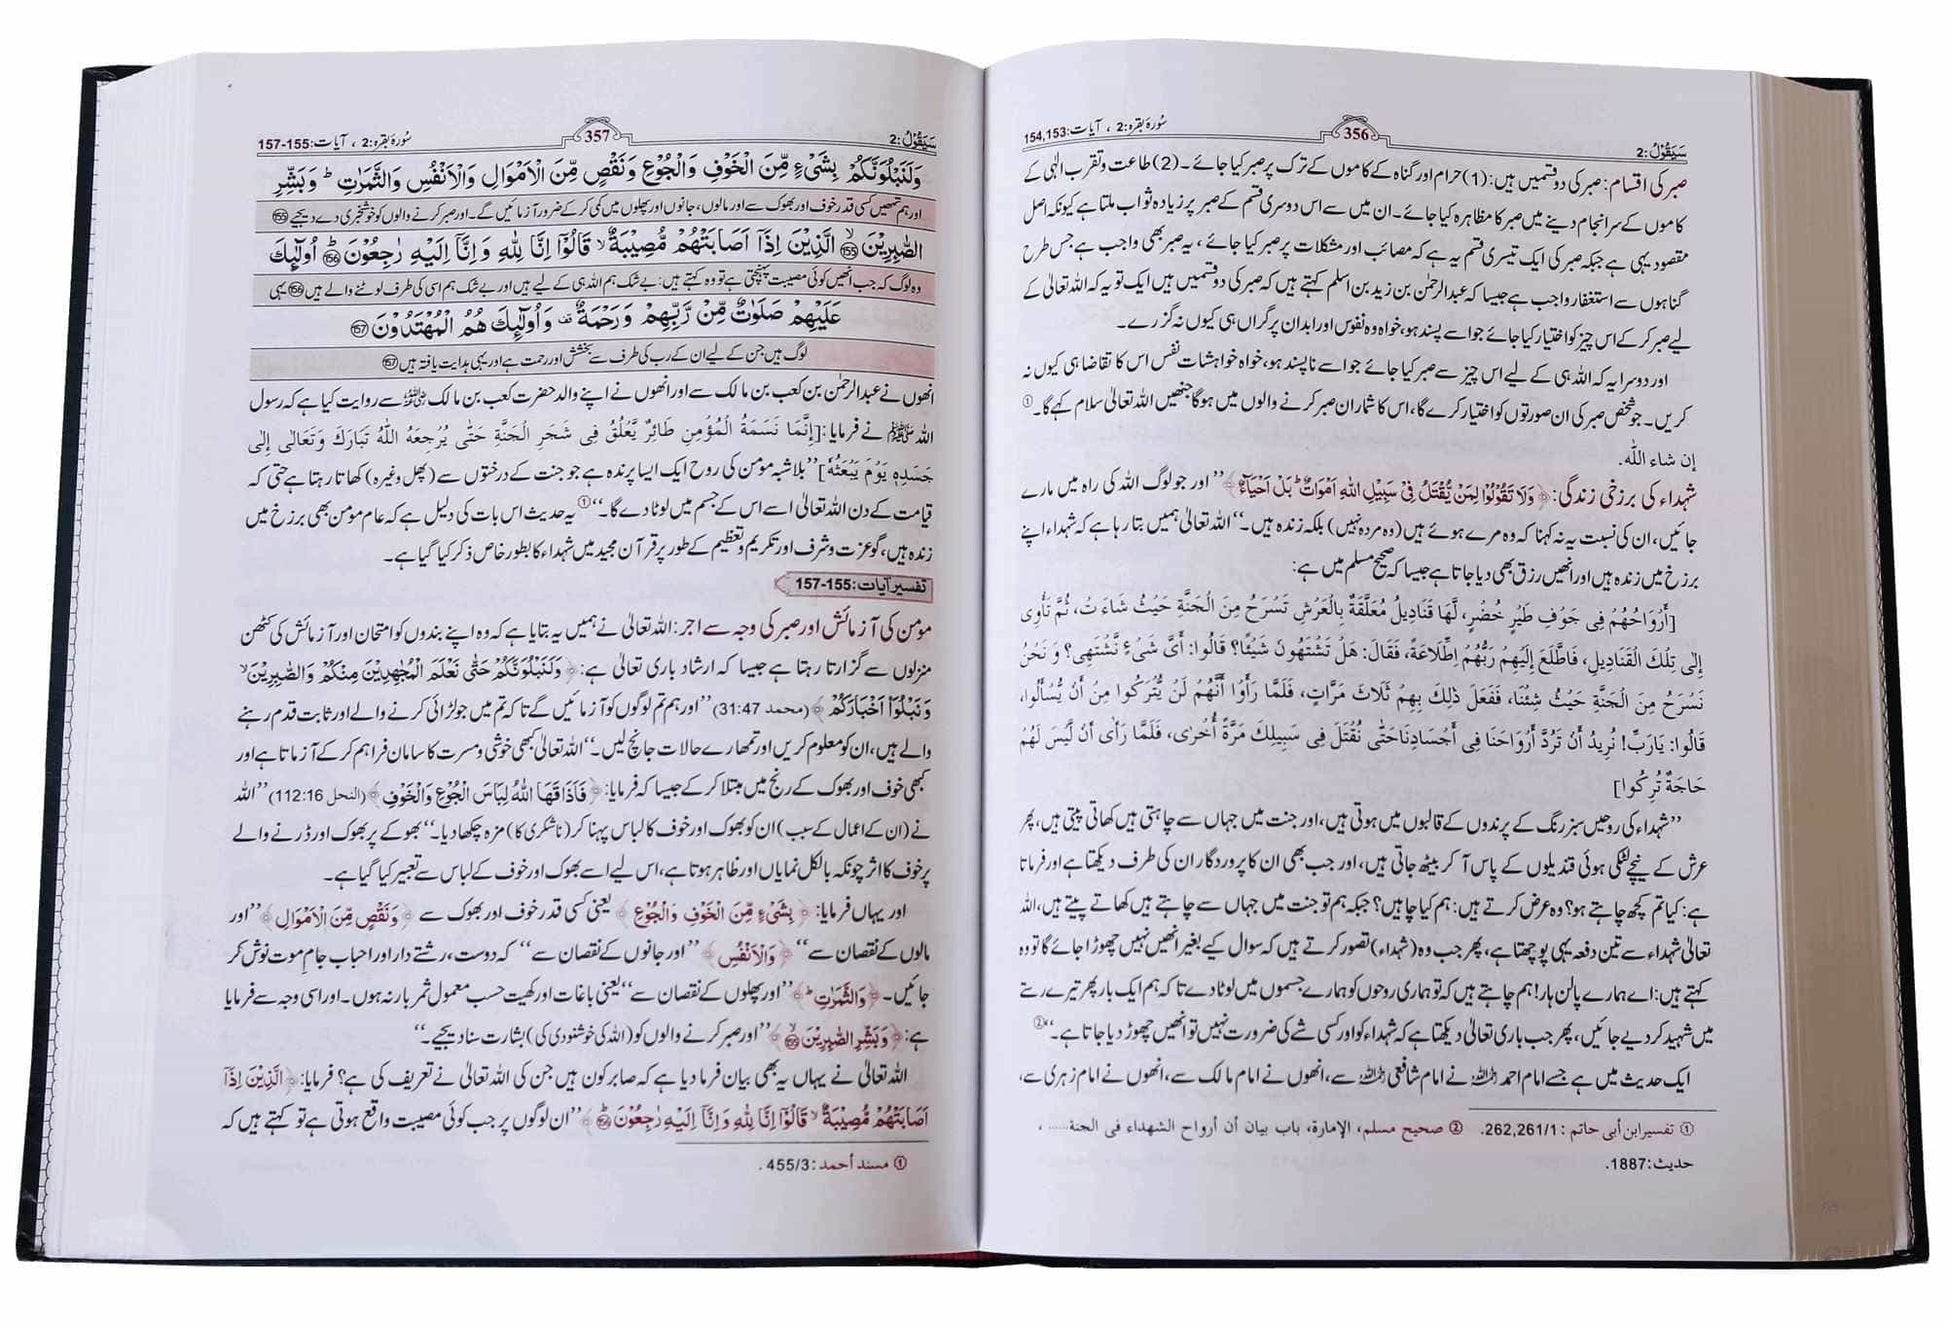 سَيَقُوْلُ:2
356
سُورۂ بقرہ:2 ، آیات:154,153
صبر کی اقسام: صبر کی دو قسمیں ہیں: (1) حرام اور گناہ کے کاموں کے ترک پر صبر کیا جائے۔ (2) طاعت و تقرب الٰہی کے
کاموں کے سرانجام دینے میں صبر کا مظاہرہ کیا جائے۔ ان میں سے اس دوسری قسم کے صبر پر زیادہ ثواب ملتا ہے کیونکہ اصل
مقصود یہی ہے جبکہ صبر کی ایک تیسری قسم یہ ہے کہ مصائب اور مشکلات پر صبر کیا جائے، یہ صبر بھی واجب ہے جس طرح
گناہوں سے استغفار واجب ہے جیسا کہ عبدالرحمٰن بن زید بن اسلم کہتے ہیں کہ صبر کی دو قسمیں ہیں ایک تو یہ کہ اللہ تعالیٰ کے
لیے صبر کر کے اس چیز کو اختیار کیا جائے جو اسے پسند ہو، خواہ وہ نفوس اور ابدان پر گراں ہی کیوں نہ گزرے۔
اور دوسرا یہ کہ اللہ ہی کے لیے اس چیز سے صبر کیا جائے جو اسے ناپسند ہو، خواہ خواہشات نفس اس کا تقاضا ہی کیوں نہ
کریں۔ جو شخص صبر کی ان صورتوں کو اختیار کرے گا، اس کا شمار ان صبر کرنے والوں میں ہوگا جنھیں اللہ تعالیٰ سلام کہے گا۔①
إن شاء اللّٰه.
شہداء کی برزخی زندگی: ﴿وَلَا تَقُوْلُوْا لِمَنْ يُّقْتَلُ فِيْ سَبِيْلِ اللّٰهِ اَمْوَاتٌ ؕ بَلْ اَحْيَآءٌ﴾ ’’اور جو لوگ اللہ کی راہ میں مارے
جائیں، ان کی نسبت یہ نہ کہنا کہ وہ مرے ہوئے ہیں (وہ مردہ نہیں) بلکہ زندہ ہیں۔‘‘ اللہ تعالیٰ ہمیں بتا رہا ہے کہ شہداء اپنے
برزخ میں زندہ ہیں اور انھیں رزق بھی دیا جاتا ہے جیسا کہ صحیح مسلم میں ہے:
[أَرْوَاحُهُمْ فِي جَوْفِ طَيْرٍ خُضْرٍ، لَهَا قَنَادِيلُ مُعَلَّقَةٌ بِالْعَرْشِ تَسْرَحُ مِنَ الْجَنَّةِ حَيْثُ شَاءَتْ، ثُمَّ تَأْوِي
إِلٰى تِلْكَ الْقَنَادِيلِ، فَاطَّلَعَ إِلَيْهِمْ رَبُّهُمُ اِطِّلَاعَةً، فَقَالَ: هَلْ تَشْتَهُونَ شَيْئًا؟ قَالُوا: أَيَّ شَيْءٍ نَّشْتَهِي؟ وَنَحْنُ
نَسْرَحُ مِنَ الْجَنَّةِ حَيْثُ شِئْنَا، فَفَعَلَ ذٰلِكَ بِهِمْ ثَلَاثَ مَرَّاتٍ، فَلَمَّا رَأَوْا أَنَّهُمْ لَنْ يُّتْرَكُوا مِنْ أَنْ يُّسْأَلُوا،
قَالُوا: يَارَبِّ! نُرِيدُ أَنْ تَرُدَّ أَرْوَاحَنَا فِي أَجْسَادِنَا حَتّٰى نُقْتَلَ فِي سَبِيلِكَ مَرَّةً أُخْرٰى، فَلَمَّا رَأٰى أَنْ لَّيْسَ لَهُمْ
حَاجَةٌ تُرِكُوا]
’’شہداء کی روحیں سبز رنگ کے پرندوں کے قالبوں میں ہوتی ہیں، اور جنت میں جہاں سے چاہتی ہیں کھاتی پیتی ہیں، پھر
عرش کے نیچے لٹکی ہوئی قندیلوں کے پاس آ کر بیٹھ جاتی ہیں، اور جب بھی ان کا پروردگار ان کی طرف دیکھتا ہے اور فرماتا
ہے: کیا تم کچھ چاہتے ہو؟ وہ عرض کرتے ہیں: ہم کیا چاہیں؟ جبکہ ہم تو جنت میں جہاں سے چاہتے ہیں کھاتے پیتے ہیں، اللہ
تعالیٰ شہداء سے تین دفعہ یہی پوچھتا ہے، پھر جب وہ (شہداء) تصور کرتے ہیں کہ سوال کیے بغیر انھیں نہیں چھوڑا جائے گا تو وہ
کہتے ہیں: اے ہمارے پالن ہار! ہم چاہتے ہیں کہ تو ہماری روحوں کو ہمارے جسموں میں لوٹا دے تاکہ ہم ایک بار پھر تیرے رستے
میں شہید کر دیے جائیں، پھر جب باری تعالیٰ دیکھتا ہے کہ شہداء کو اور کسی شے کی ضرورت نہیں تو انھیں چھوڑ دیا جاتا ہے۔‘‘②
ایک حدیث میں ہے جسے امام احمد رحمہ اللہ نے امام شافعی رحمہ اللہ سے، انھوں نے امام مالک سے، انھوں نے امام زہری سے،
① تفسیر ابن أبی حاتم : 262,261/1. ② صحیح مسلم، الإمارة، باب بیان أن أرواح الشهداء فی الجنة......،
حدیث:1887.
سَيَقُوْلُ:2
357
سُورۂ بقرہ:2 ، آیات:155-157
وَلَنَبْلُوَنَّكُمْ بِشَيْءٍ مِّنَ الْخَوْفِ وَالْجُوْعِ وَنَقْصٍ مِّنَ الْاَمْوَالِ وَالْاَنْفُسِ وَالثَّمَرٰتِ ؕ وَبَشِّرِ
اور ہم تمھیں کسی قدر خوف اور بھوک سے اور مالوں، جانوں اور پھلوں میں کمی کر کے ضرور آزمائیں گے۔ اور صبر کرنے والوں کو خوشخبری دے دیجیے ⑮⑤
الصّٰبِرِيْنَ ۙ⑮⑤ الَّذِيْنَ اِذَآ اَصَابَتْهُمْ مُّصِيْبَةٌ ۙ قَالُوْٓا اِنَّا لِلّٰهِ وَاِنَّآ اِلَيْهِ رٰجِعُوْنَ ؕ⑮⑥ اُولٰٓئِكَ
وہ لوگ کہ جب انھیں کوئی مصیبت پہنچتی ہے تو وہ کہتے ہیں: بے شک ہم اللہ ہی کے لیے ہیں اور بے شک ہم اسی کی طرف لوٹنے والے ہیں ⑮⑥ یہی
عَلَيْهِمْ صَلَوٰتٌ مِّنْ رَّبِّهِمْ وَرَحْمَةٌ ۫ وَاُولٰٓئِكَ هُمُ الْمُهْتَدُوْنَ ⑮⑦
لوگ ہیں جن کے لیے ان کے رب کی طرف سے بخشش اور رحمت ہے اور یہی ہدایت یافتہ ہیں ⑮⑦
انھوں نے عبدالرحمٰن بن کعب بن مالک سے اور انھوں نے اپنے والد حضرت کعب بن مالک رضی اللہ عنہ سے روایت کیا ہے کہ رسول
اللہ ﷺ نے فرمایا: [إِنَّمَا نَسَمَةُ الْمُؤْمِنِ طَائِرٌ يَّعْلُقُ فِي شَجَرِ الْجَنَّةِ حَتّٰى يُرْجِعَهُ اللّٰهُ تَبَارَكَ وَتَعَالٰى إِلٰى
جَسَدِهِ يَوْمَ يَبْعَثُهُ] ’’بلاشبہ مومن کی روح ایک ایسا پرندہ ہے جو جنت کے درختوں سے (پھل وغیرہ) کھاتا رہتا ہے حتی کہ
قیامت کے دن اللہ تعالیٰ اسے اس کے جسم میں لوٹا دے گا۔‘‘① یہ حدیث اس بات کی دلیل ہے کہ عام مومن بھی برزخ میں
زندہ ہیں، گو عزت و شرف اور تکریم و تعظیم کے طور پر قرآن مجید میں شہداء کا بطور خاص ذکر کیا گیا ہے۔
تفسیر آیات:155-157
مومن کی آزمائش اور صبر کی وجہ سے اجر: اللہ تعالیٰ نے ہمیں یہ بتایا ہے کہ وہ اپنے بندوں کو امتحان اور آزمائش کی کٹھن
منزلوں سے گزارتا رہتا ہے جیسا کہ ارشاد باری تعالیٰ ہے: ﴿وَلَنَبْلُوَنَّكُمْ حَتّٰى نَعْلَمَ الْمُجٰهِدِيْنَ مِنْكُمْ وَالصّٰبِرِيْنَ ۙ
وَنَبْلُوَا۟ اَخْبَارَكُمْ﴾ (محمد 31:47) ’’اور ہم تم لوگوں کو آزمائیں گے تاکہ تم میں جو لڑائی کرنے والے اور ثابت قدم رہنے
والے ہیں، ان کو معلوم کریں اور تمھارے حالات جانچ لیں۔‘‘ اللہ تعالیٰ کبھی خوشی و مسرت کا سامان فراہم کر کے آزماتا ہے اور
کبھی خوف اور بھوک کے رنج میں مبتلا کر کے جیسا کہ فرمایا: ﴿فَاَذَاقَهَا اللّٰهُ لِبَاسَ الْجُوْعِ وَالْخَوْفِ﴾ (النحل 112:16) ’’اللہ
نے (ان کے اعمال کے سبب) ان کو بھوک اور خوف کا لباس پہنا کر (ناشکری کا) مزہ چکھا دیا۔‘‘ بھوکے پر بھوک اور ڈرنے والے
پر خوف کا اثر چونکہ بالکل نمایاں اور ظاہر ہوتا ہے، اس لیے اسے بھوک اور خوف کے لباس سے تعبیر کیا گیا ہے۔
اور یہاں فرمایا: ﴿بِشَيْءٍ مِّنَ الْخَوْفِ وَالْجُوْعِ﴾ یعنی کسی قدر خوف اور بھوک سے ﴿وَنَقْصٍ مِّنَ الْاَمْوَالِ﴾ ’’اور
مالوں کے نقصان سے‘‘ ﴿وَالْاَنْفُسِ﴾ ’’اور جانوں کے نقصان سے‘‘ کہ دوست، رشتے دار اور احباب جامِ موت نوش کر
جائیں۔ ﴿وَالثَّمَرٰتِ ؕ﴾ ’’اور پھلوں کے نقصان سے‘‘ یعنی باغات اور کھیت حسب معمول ثمر بار نہ ہوں۔ اور اسی وجہ سے فرمایا
ہے: ﴿وَبَشِّرِ الصّٰبِرِيْنَ ۙ⑮⑤﴾ ’’اور صبر کرنے والوں کو (اللہ کی خوشنودی کی) بشارت سنا دیجیے۔‘‘
اللہ تعالیٰ نے یہاں یہ بھی بیان فرما دیا ہے کہ صابر کون ہیں جن کی اللہ تعالیٰ نے تعریف کی ہے؟ فرمایا: ﴿الَّذِيْنَ اِذَآ
اَصَابَتْهُمْ مُّصِيْبَةٌ ۙ قَالُوْٓا اِنَّا لِلّٰهِ وَاِنَّآ اِلَيْهِ رٰجِعُوْنَ ؕ⑮⑥﴾ ’’ان لوگوں پر جب کوئی مصیبت واقع ہوتی ہے تو کہتے ہیں کہ
① مسند أحمد:455/3 .